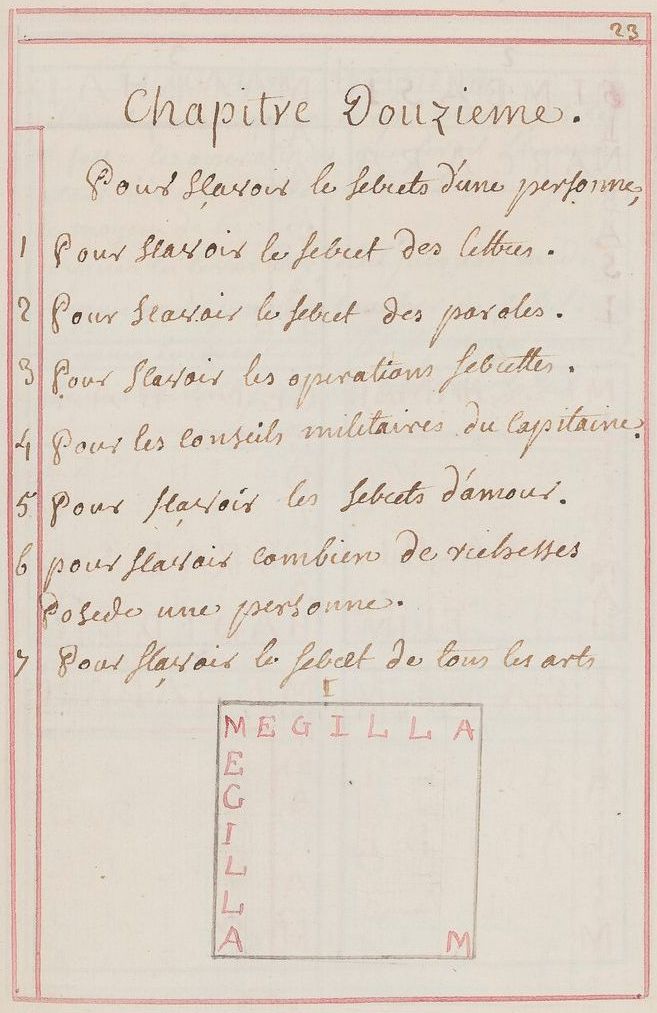 23
Chapitre Douzieme.
Pour sçavoir le secrets d'une personne,
1 Pour scavoir le secret des lettres.
2 Pour scavoir le secret des paroles.
3 Pour scavoir les operations secrettes.
4 Pour les conseils militaires du Capitaine.
5 Pour sçavoir les secrets d'amour.
6 pour scavoir combien de richesses
Posede une personne.
7 Pour sçavoir le secret de tous les arts
I
MEGILLA
E
G
I
L
L
A M